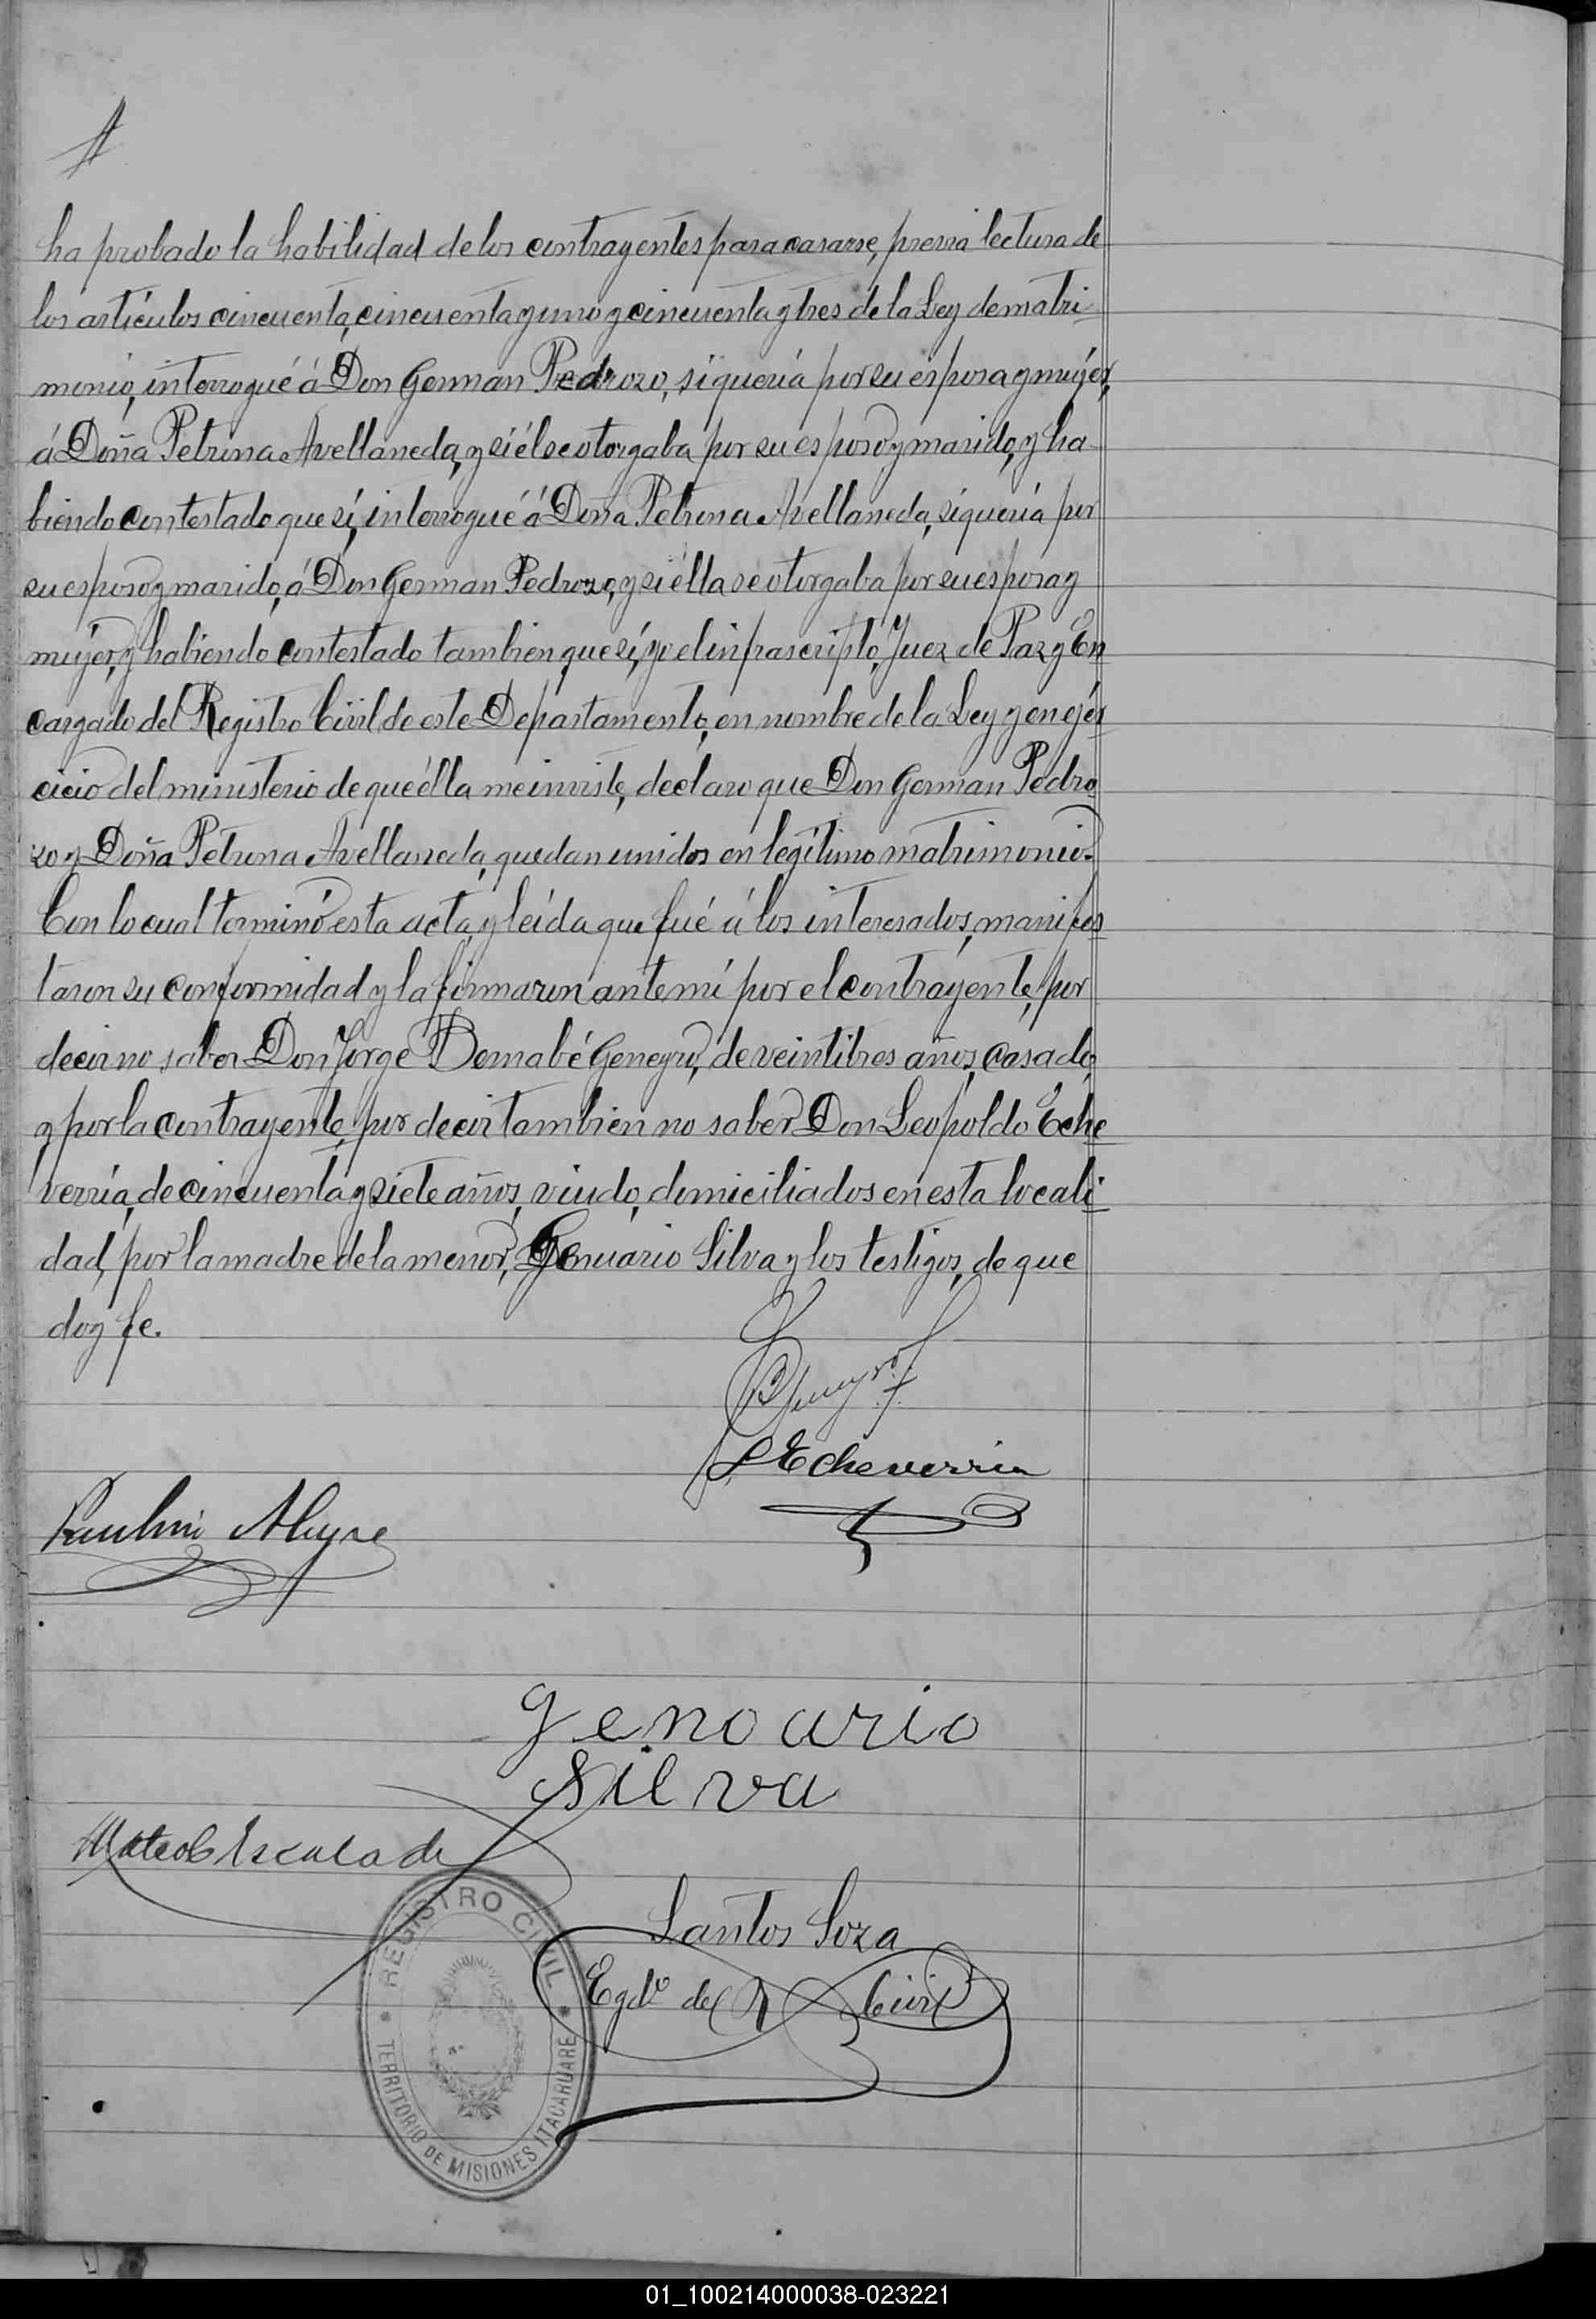 ha probado la habilidad de los contrayentes para casarse, previa lectura de
los artículos cincuenta, cincuenta y uno y cincuenta y tres de la Ley de matri-
monio, interrogué á Don German Pedrozo, si quería por su esposa y mujér,
á Doña Petrona Avellaneda, y si él se otorgaba por su esposo y marido, y ha-
biendo contestado que sí, interrogué á Doña Petrona Avellaneda, si quería por
su esposo y marido, á Don German Pedrozo, y si élla se otorgaba por su esposa y
mujér, y habiendo contestado tambien que sí, yo el infrascripto, Juez de Paz y En
cargado del Registro Civil de este Departamento, en nombre de la Ley y en ejér
cicio del ministerio de que élla me inviste, declaro que Don German Pedro
zo y Doña Petrona Avellaneda, quedan unidos en legítimo matrimonio.
Con lo cual terminó esta acta, y leída que fué á los interesados, manifes
taron su conformidad y la firmaron ante mí por el contrayente, por
decir no saber Don Jorge Bernabé Geneyro, de veintitres años, casado,
y por la contrayente, por decir tambien no saber Don Leopoldo Eche
verría, de cincuenta y siete años, viudo, domiciliados en esta locali
dad, por la madre de la menor, Genuario Silva y los testigos, de que
doy fe.
L Echeverria
genoario
Silva
Mateo Escalade
REGISTRO CIVIL
Santos Soza
Egdo del R Civil
TERRITORIO DE MISIONES ITACARUARÉ
01_100214000038-023221